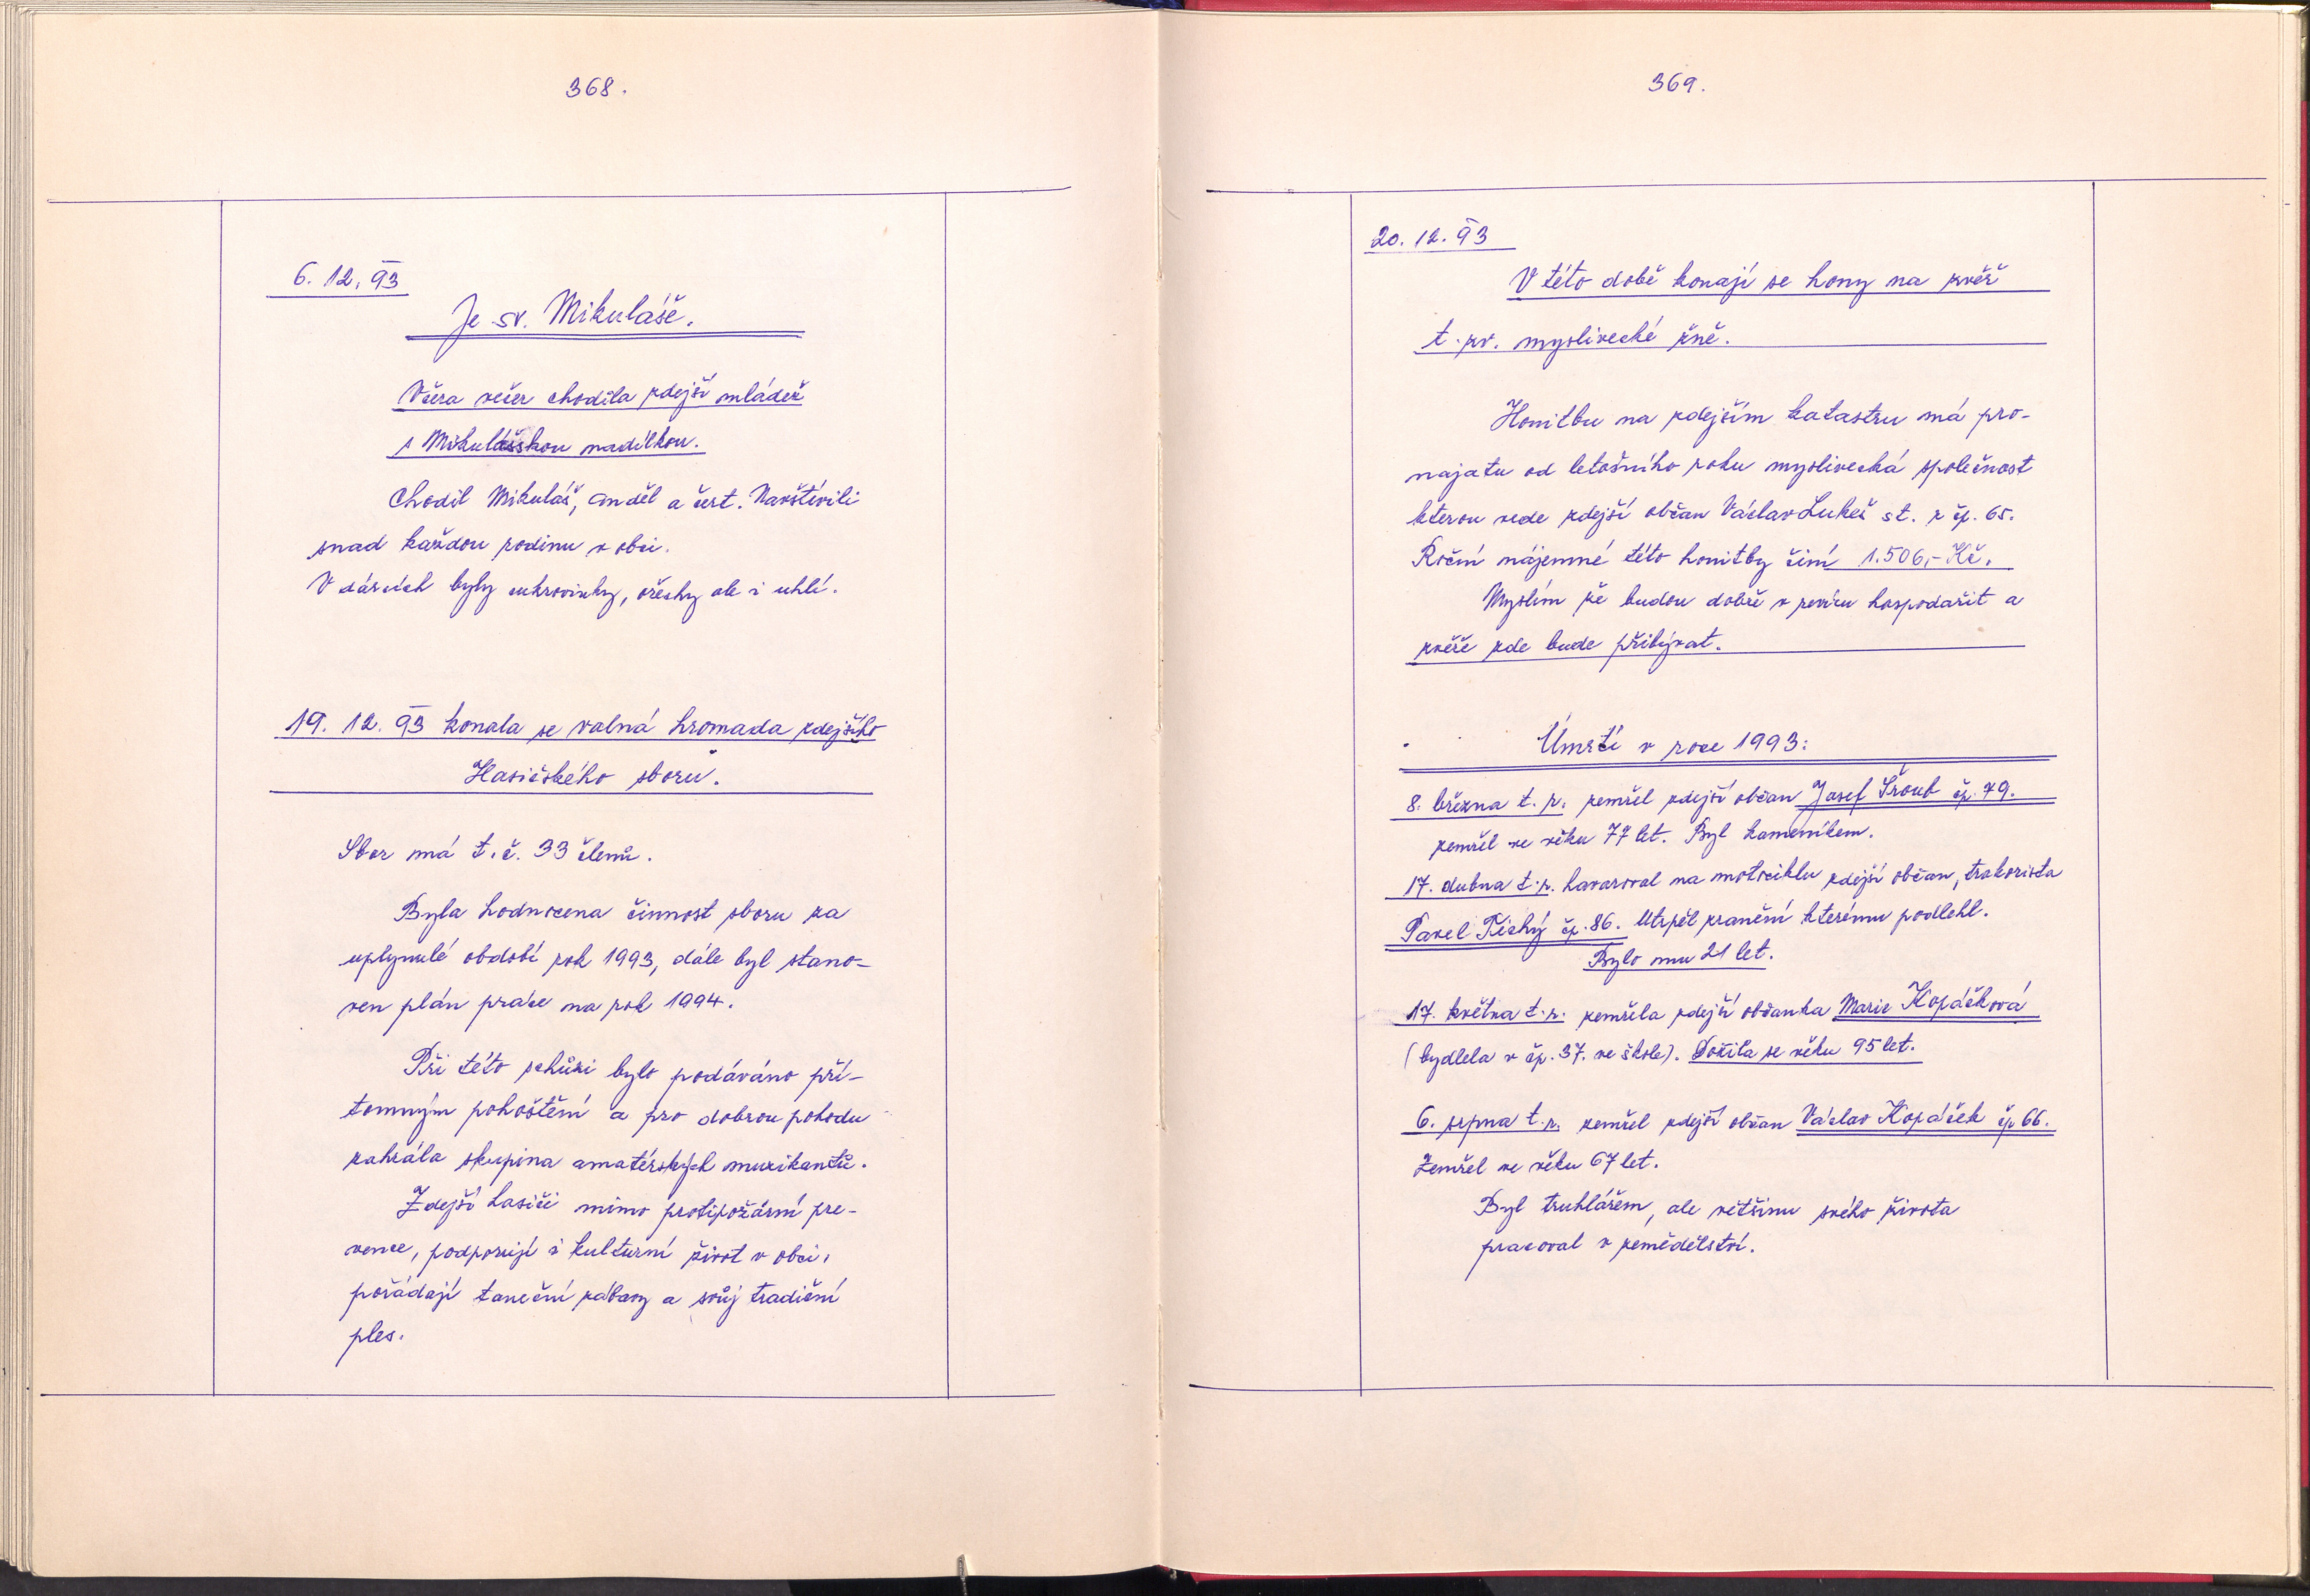 368.
6. 12. 93
Je sv. Mikuláše.
Včera večer chodila zdejší mládež
s Mikulášskou nadílkou.
Chodil Mikuláš, anděl a čert. Navštívili
snad každou rodinu v obci.
V dárcích byly cukrovinky, ořechy ale i uhlí.
19. 12. 93 konala se valná hromada zdejšího
Hasičského sboru.
Sbor má t. č. 33 členů.
Byla hodnocena činnost sboru za
uplynulé období rok 1993, dále byl stano-
ven plán práce na rok 1994.
Při této schůzi bylo podáváno pří-
tomným pohoštění a pro dobrou pohodu
zahrála skupina amatérských muzikantů.
Zdejší hasiči mimo protipožární pre-
vence, podporují i kulturní život v obci,
pořádají taneční zábavy a svůj tradiční
ples.
369.
20. 12. 93
V této době konají se hony na zvěř
t. zv. myslivecké žně.
Honitbu na zdejším katastru má pro-
najatu od letošního roku myslivecká společnost
kterou vede zdejší občan Václav Lukeš st. z čp. 65.
Roční nájemné této honitby činí 1.506,- Kč.
Myslím že budou dobře v revíru hospodařit a
zvěře zde bude přibývat.
Úmrtí v roce 1993:
8. března t. r. zemřel zdejší občan Josef Šroub čp. 79.
zemřel ve věku 77 let. Byl kameníkem.
17. dubna t. r. havaroval na motociklu zdejší občan, trakorista
Pavel Tichý čp. 86. Utrpěl zranění kterému podlehl.
Bylo mu 21 let.
17. května t. r. zemřela zdejší občanka Marie Kopáčková
(bydlela v čp. 37. ve škole). Dožila se věku 95 let.
6. srpna t. r. zemřel zdejší občan Václav Kopáček čp 66.
Zemřel ve věku 67 let.
Byl truhlářem, ale většinu svého života
pracoval v zemědělství.